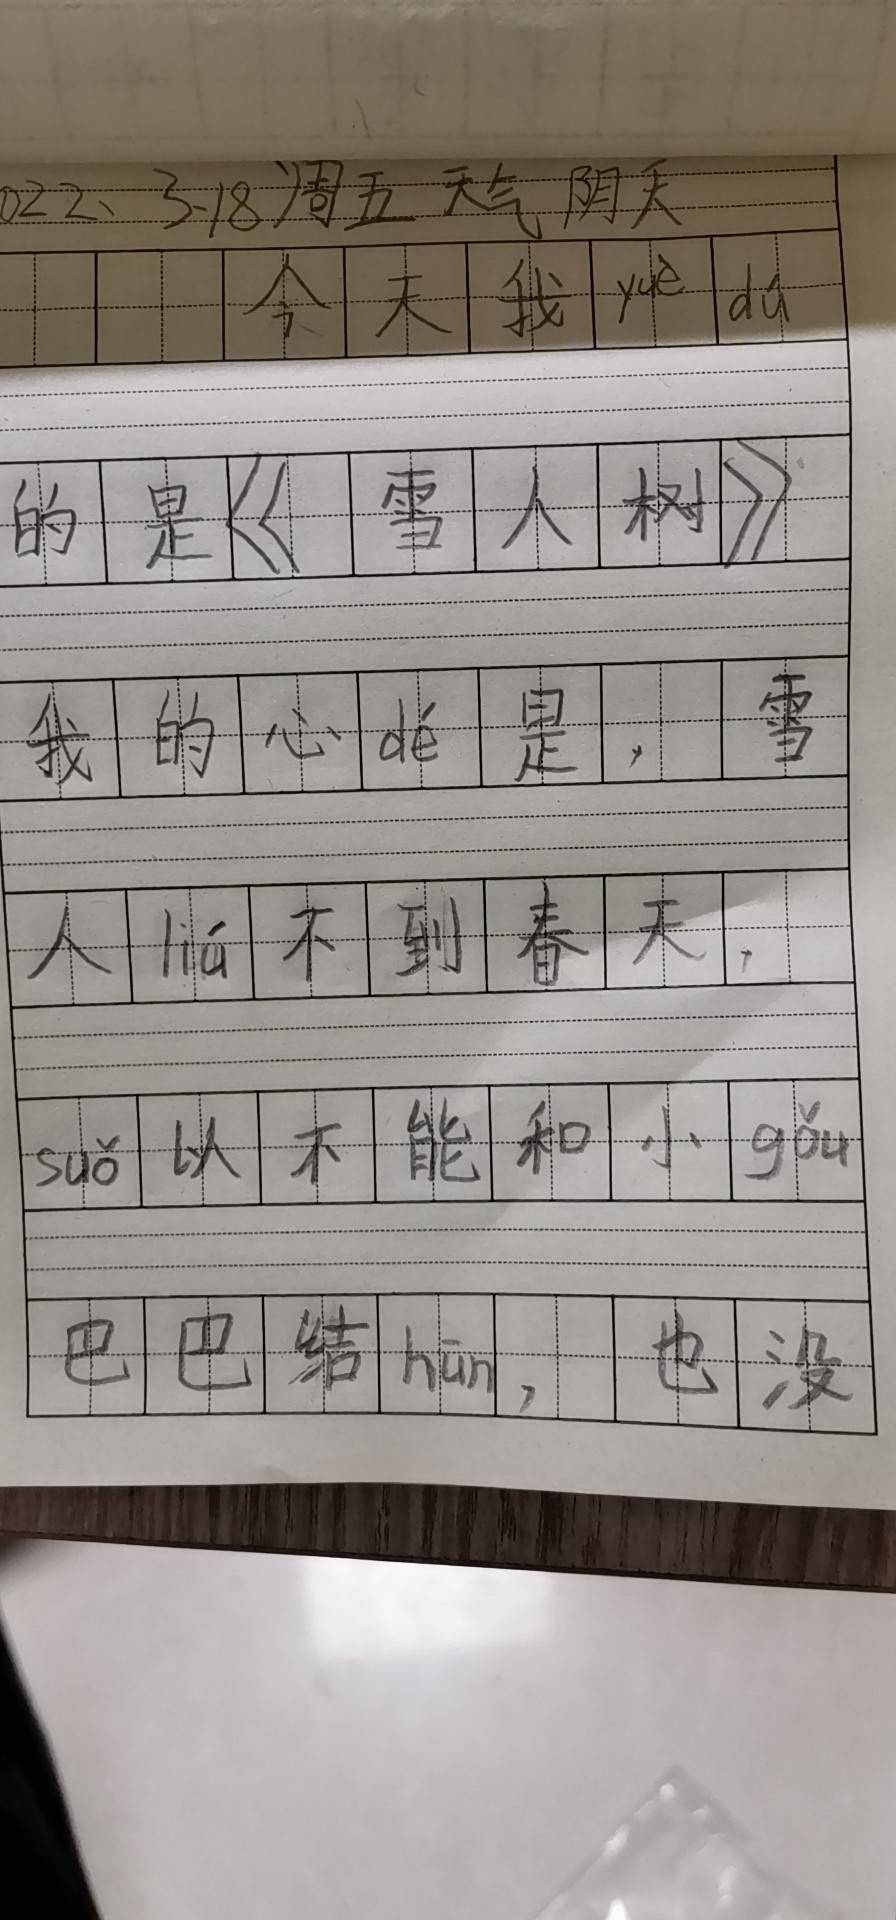 022、3-18周五 天气 阴天
今天我yuè dú
的是《雪人树》
我的心dé是，雪
人liú不到春天，
suǒ以不能和小gǒu
巴巴结hūn，也没